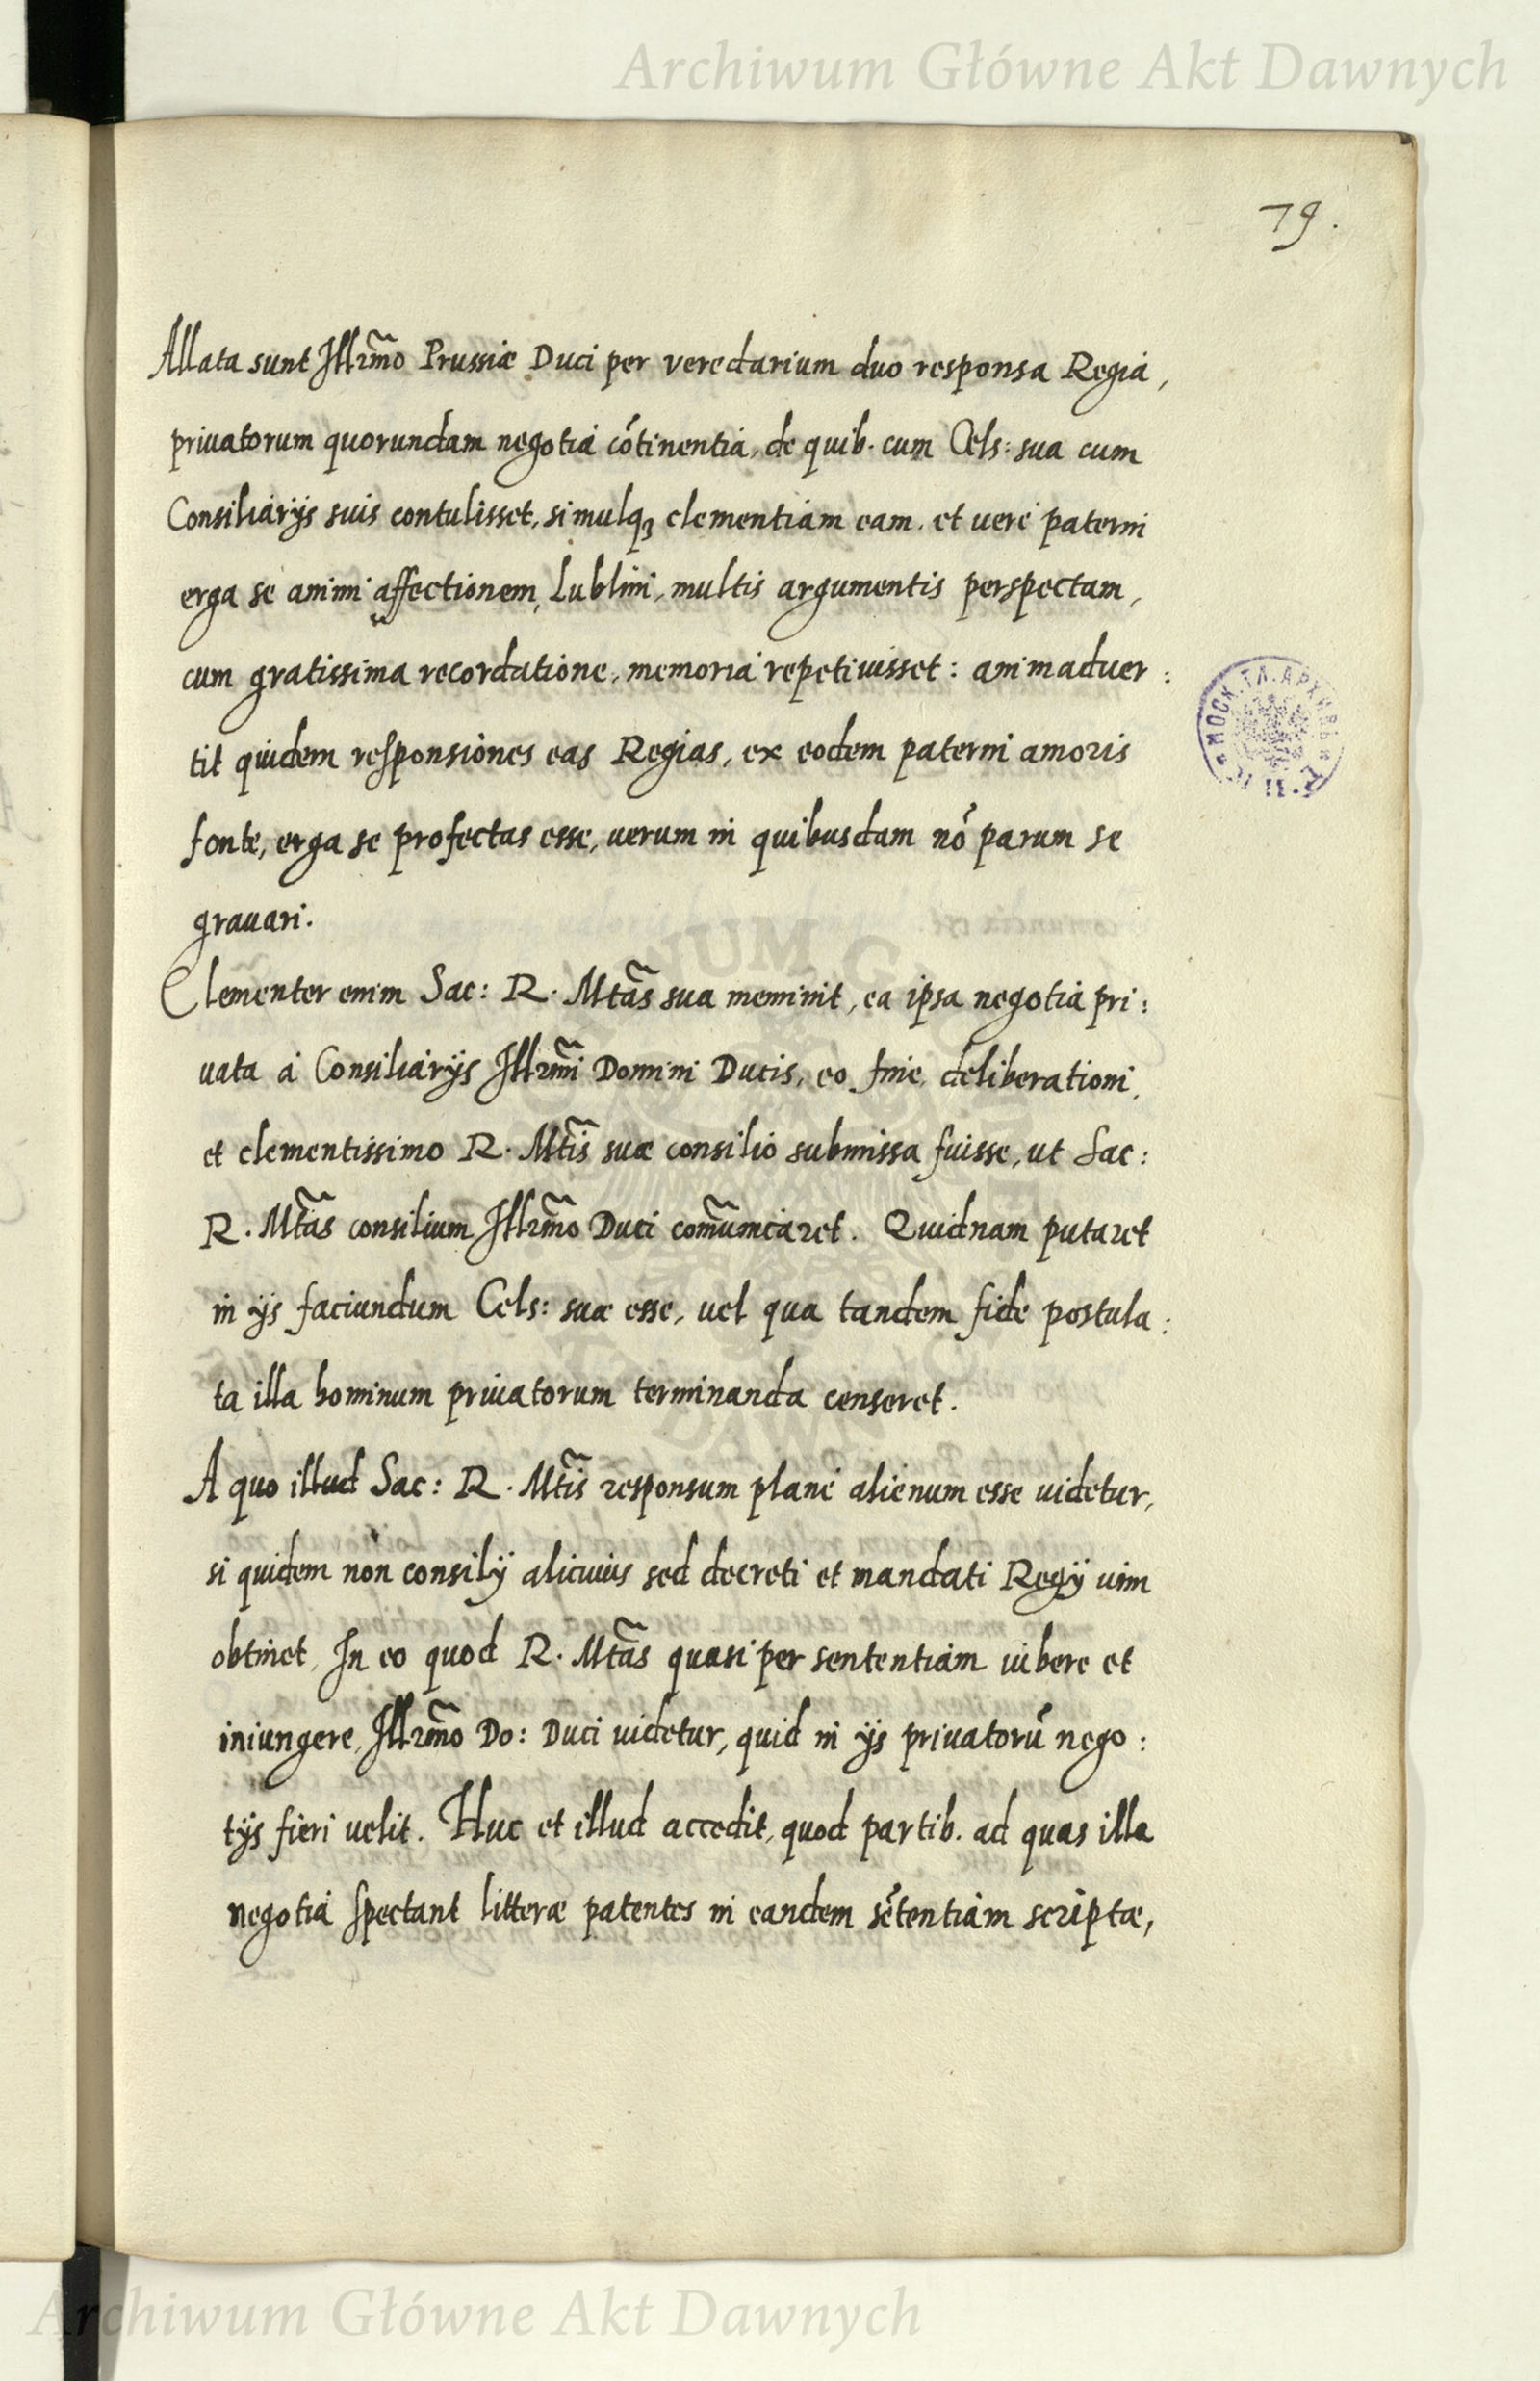 Archiwum Główne Akt Dawnych
79.
Allata sunt Illr̃mo Prussiæ Duci per veredarium duo responsa Regia,
priuatorum quorundam negotia cōtinentia, de quib. cum Cels: sua cum
Consiliarijs suis contulisset, simulq₃ clementiam eam, et vere paterni
erga se animi affectionem, Lublini, multis argumentis perspectam,
cum gratissima recordatione, memoria repetiuisset: animaduer:
tit quidem responsiones eas Regias, ex eodem paterni amoris
fonte, erga se profectas esse, uerum in quibusdam nō parum se
grauari.
Clementer enim Sac: R. Mtãs sua meminit, ea ipsa negotia pri:
uata à Consiliarijs Illr̃mi Domini Ducis, eo fine, deliberationi,
et clementissimo R. Mtĩs suæ consilio submissa fuisse, ut Sac:
R. Mtãs consilium Illr̃mo Duci com̃uniaret. Quidnam putaret
in ijs faciundum Cels: suæ esse, uel qua tandem fide postula:
ta illa hominum priuatorum terminanda censeret.
A quo illud Sac: R. Mtĩs responsum planè alienum esse uidetur,
si quidem non consilij alicuius sed decreti et mandati Regij uim
obtinet, In eo quod R. Mtãs quasi per sententiam iubere et
iniungere, Illr̃mo Do: Duci uidetur, quid in ijs priuatorū nego:
tijs fieri uelit. Huc et illud accedit, quod partib. ad quas illa
negotia spectant litteræ patentes in eandem sētentiam scriptæ,
МОСК. ГЛ. АРХИВЪ
Archiwum Główne Akt Dawnych